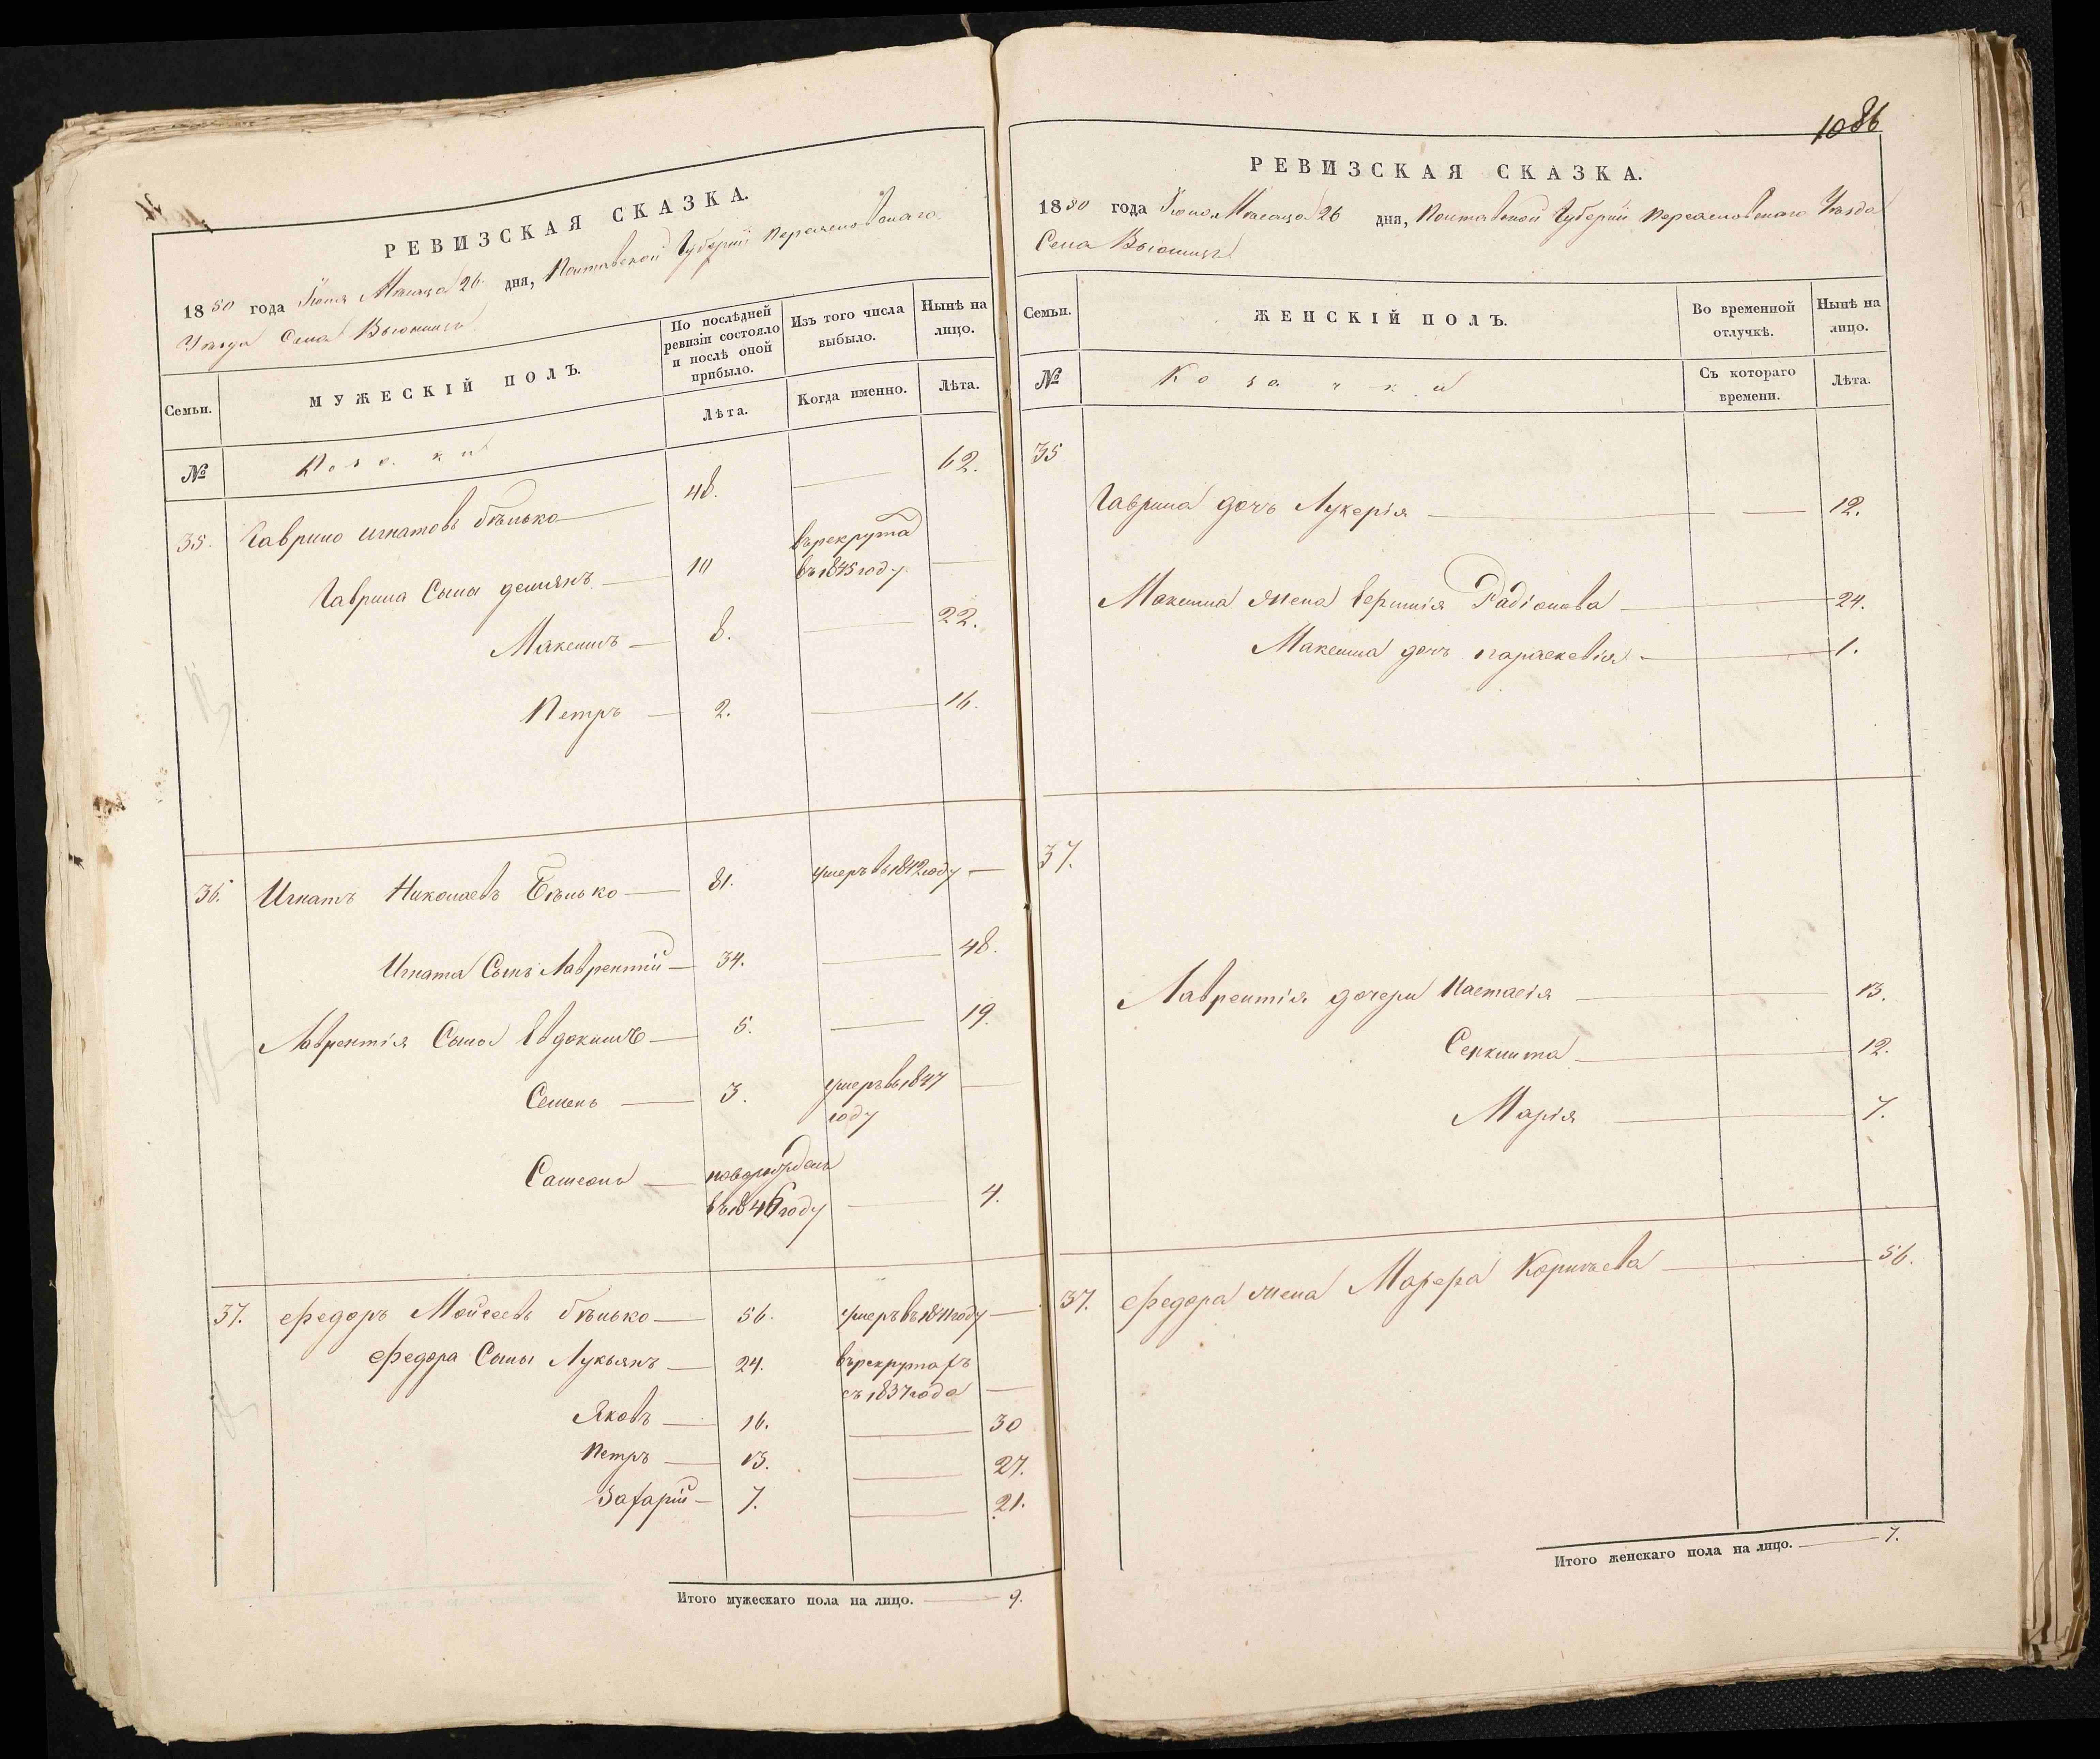 РЕВИЗСКАЯ СКАЗКА.
1850 года Іюня Мѣсяца 26 дня, Полтавской Губерніи Переяславскаго
Уѣзда Села Вьюнищъ
Семьи. МУЖЕСКІЙ ПОЛЪ. По послѣдней ревизіи состояло и послѣ оной прибыло. Изъ того числа выбыло. Нынѣ на лицо.
Лѣта. Когда именно. Лѣта.
№ Козаки
35. Гаврило Игнатовъ Бѣлько 48. 62.
Гаврила Сыны Демьянъ 10 въ рекрута
въ 1845 году
Максимъ 8. 22.
Петръ 2. 16.
36. Игнатъ Николаевъ Бѣлько 81. умеръ въ 1842 году
Игната Сынъ Лаврентій 34. 48.
Лаврентія Сыны Евдокимъ 5. 19.
Семенъ 3. умеръ въ 1847
году
Самсонъ новорожденъ
въ 1846 году 4.
37. Федоръ Мойсеевъ Бѣлько 56. умеръ въ 1841 году
Федора Сыны Лукьянъ 24. въ рекрутахъ
съ 1837 года
Яковъ 16. 30
Петръ 13. 27.
Захарій 7. 21.
Итого мужескаго пола на лицо. 9.
1086
РЕВИЗСКАЯ СКАЗКА.
1850 года Іюня Мѣсяца 26 дня, Полтавской Губерніи Переяславскаго Уѣзда
Села Вьюнищъ
Семьи. ЖЕНСКІЙ ПОЛЪ. Во временной отлучкѣ. Нынѣ на лицо.
№ Козачки Съ котораго времени. Лѣта.
35
Гаврила дочъ Лукерія 12.
Максима жена Радіонова 24.
Максима дочъ Параскевія 1.
37.
Лаврентія дочери Настасія 13.
12.
Марія 7.
37. Федора жена Марфа 56.
Итого женскаго пола на лицо. 7.